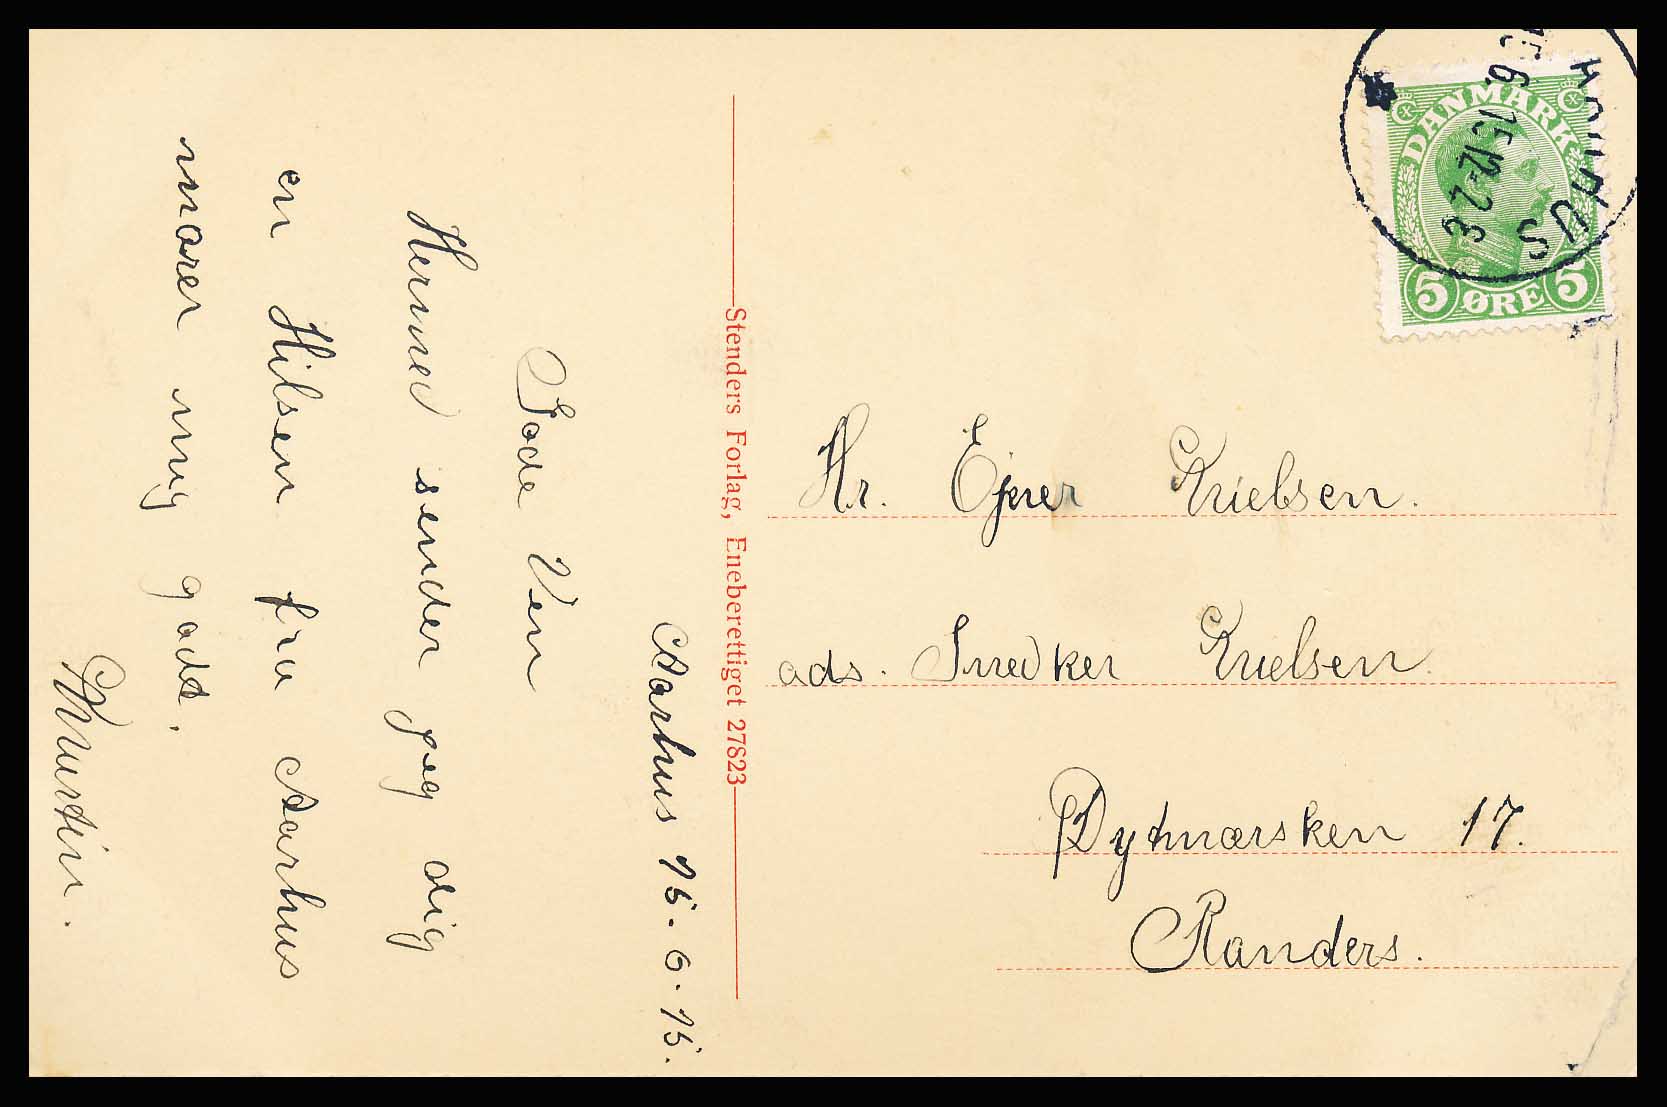 Aarhus 15-6-15.
Gode Ven
Hermed sender jeg dig
en Hilsen fra Aarhus
morer mig godt.
Martin.
Stenders Forlag, Eneberettiget 27823
AARHUS
15.6.15.12-2 E
DANMARK
5 ØRE 5
Hr. Ejner Nielsen.
ads. Snedker Nielsen.
Dytmærsken 17.
Randers.